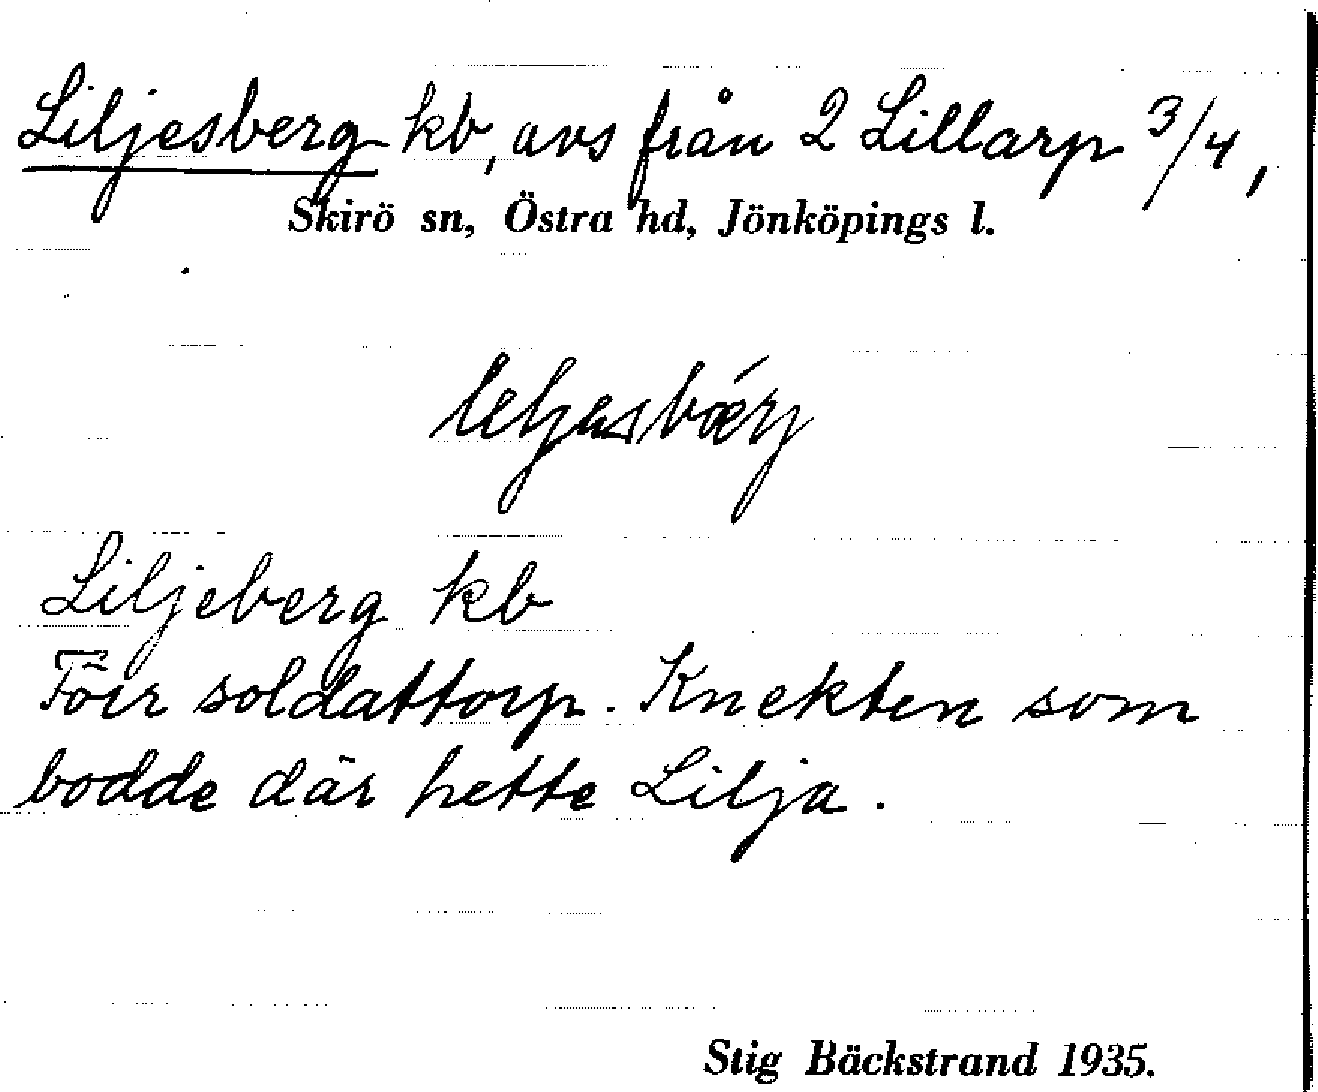 Liljesberg kb, avs från 2 Lillarp 3/4,
Skirö sn, Östra hd, Jönköpings l.
Liljeberg kb
Förr soldattorp. Knekten som
bodde där hette Lilja.
Stig Bäckstrand 1935.